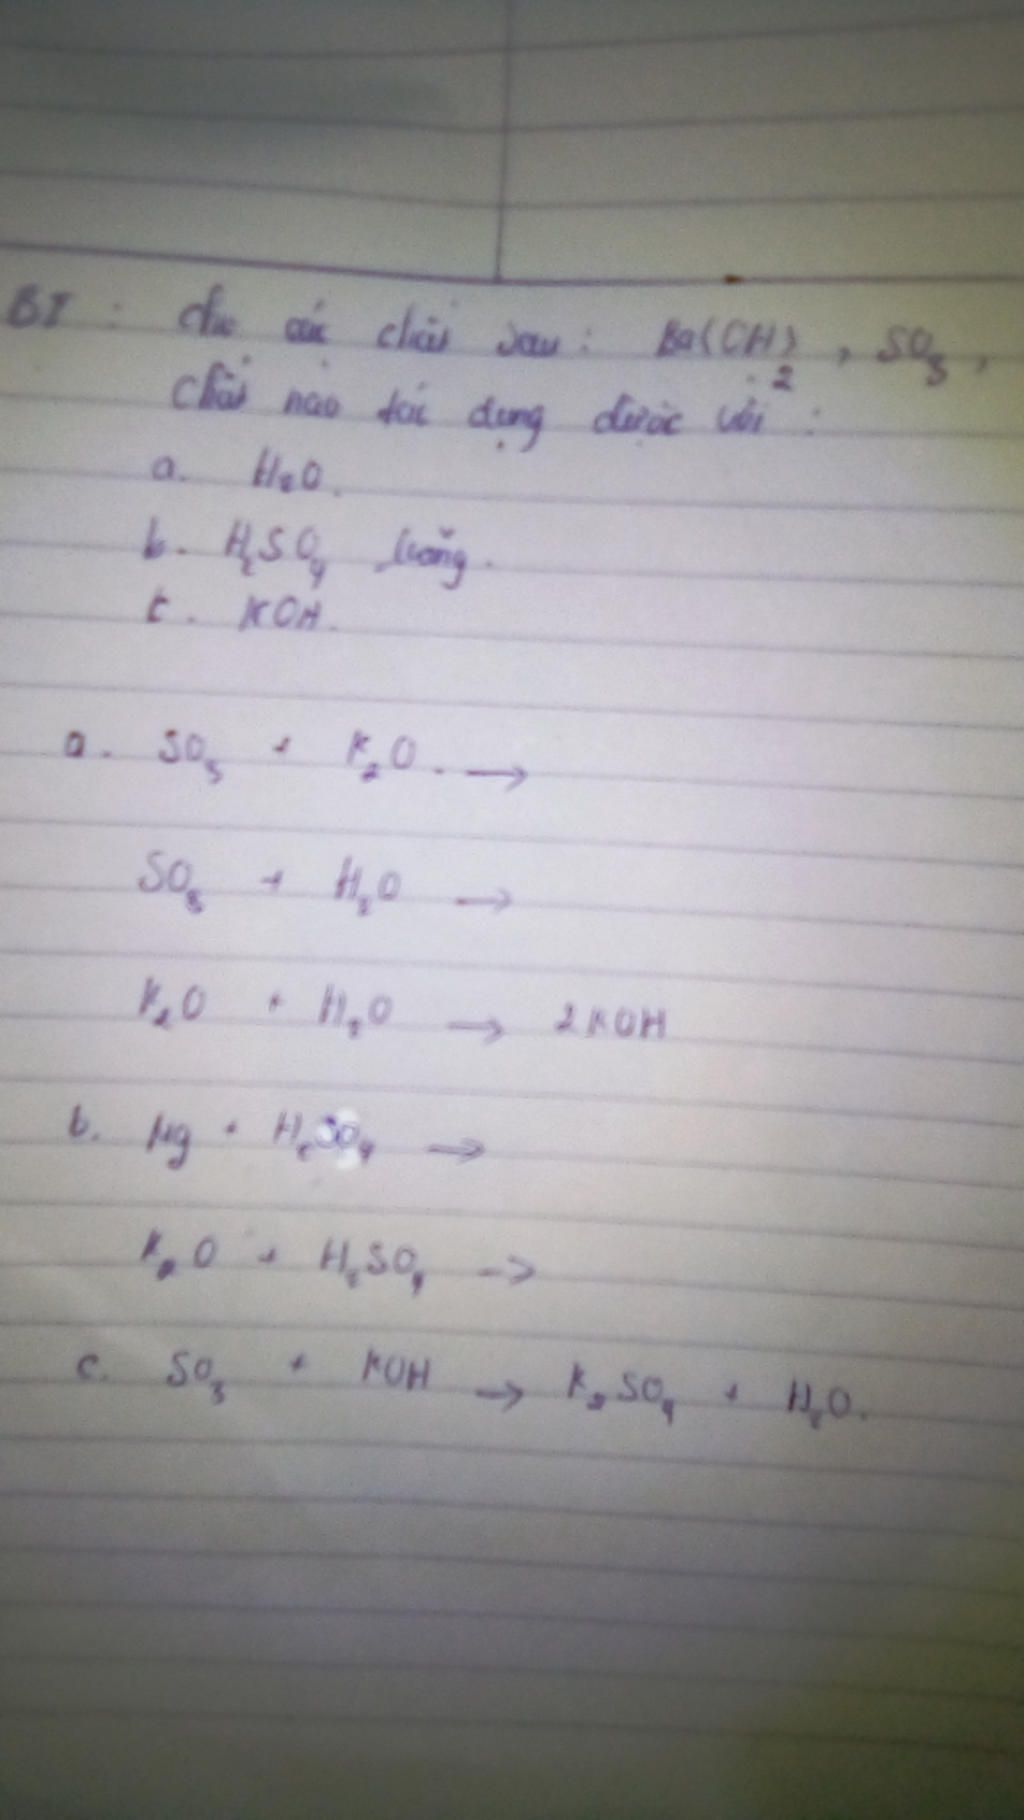 BI : Cho các chất sau : Ba(OH)₂ , SO₃ ,
Chất nào tác dụng được với :
a. H₂O.
b. H₂SO₄ loãng.
c. KOH.
a. SO₃ + K₂O. →
SO₃ + H₂O →
K₂O + H₂O → 2KOH
b. Mg + H₂SO₄ →
K₂O + H₂SO₄ →
c. SO₃ + KOH → K₂SO₄ + H₂O.